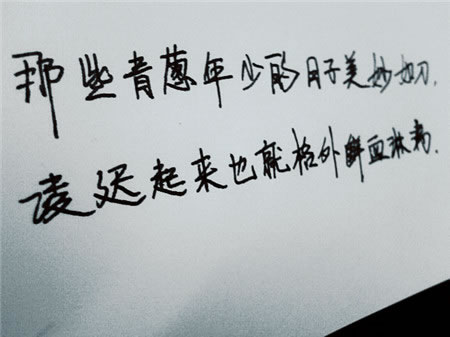 那些青葱年少的日子美妙如刀.
凌迟起来也就格外鲜血淋漓.